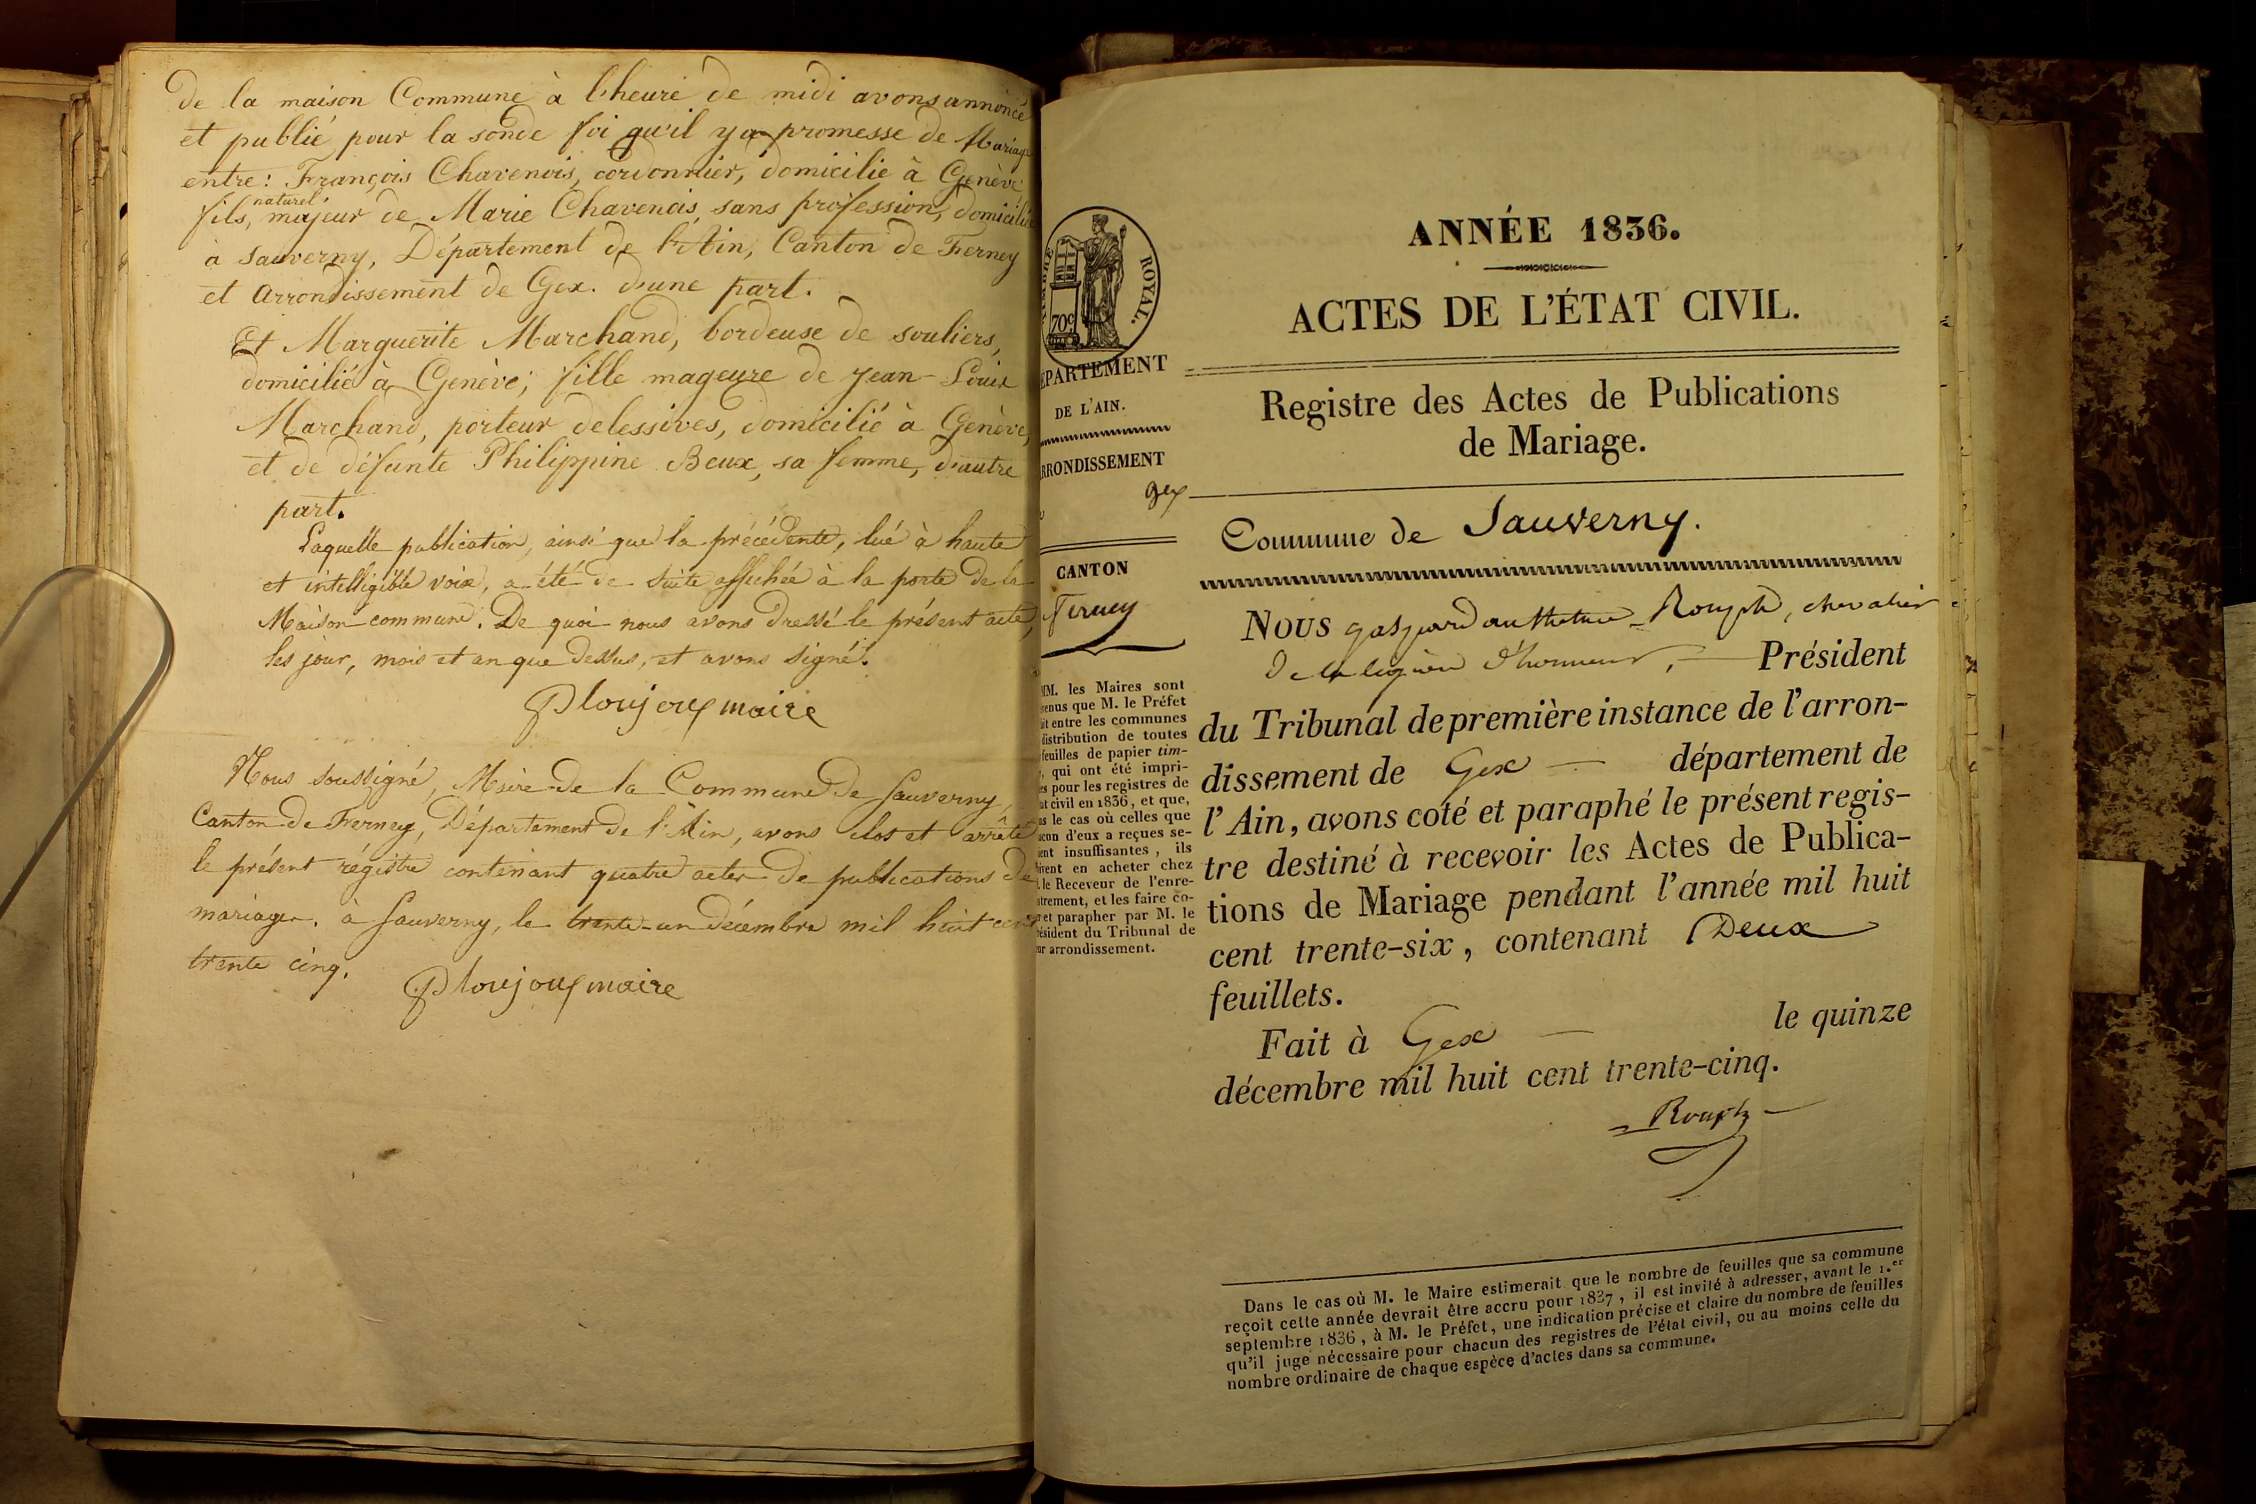 de la maison Commune à l'heure de midi avons annoncé
et publié pour la sonde foi qu'il y a promesse de Mariage
entre: François Chavenois, cordonnier, domicilié à Genève
fils, naturel majeur de Marie Chavenois, sans profession, domiciliée
à Sauverny, Département de l'Ain, Canton de Ferney
et Arrondissement de Gex. d'une part.
Et Marguerite Marchand, bordeuse de souliers,
domicilié à Genève; fille mageure de Jean-Louis
Marchand, porteur delessives, domicilié à Genève,
et de défunte Philippine Beux, sa femme, d'autre
part.
Laquelle publication, ainsi que la précédente, lué à haute
et intelligible voix, a été de suite affichée à la porte de la
Maison commune. De quoi nous avons dressé le présent acte,
les jour, mois et an que dessus, et avons signé.
Ploujoux maire
Nous soussigné, Maire de la Commune de Sauverny,
Canton de Ferney, Département de l'Ain, avons clos et arrêté
le présent régistre contenant quatre actes de publications de
mariages. à Sauverny, le trente-un décembre mil huit cent
trente cinq.
Ploujoux maire
TIMBRE ROYAL.
70c
DÉPARTEMENT
DE L'AIN.
ARRONDISSEMENT
gex
CANTON
Ferney
MM. les Maires sont
venus que M. le Préfet
fait entre les communes
distribution de toutes
feuilles de papier tim-
qui ont été impri-
es pour les registres de
at civil en 1836, et que,
ns le cas où celles que
acun d'eux a reçues se-
ient insuffisantes, ils
vinent en acheter chez
le Receveur de l'enre-
istrement, et les faire co-
r et parapher par M. le
résident du Tribunal de
ur arrondissement.
ANNÉE 1836.
ACTES DE L'ÉTAT CIVIL.
Registre des Actes de Publications
de Mariage.
Commune de Sauverny.
NOUS gaspard Rouph, chevalier
De la legion d'honneur, Président
du Tribunal de première instance de l'arron-
dissement de Gex département de
l'Ain, avons coté et paraphé le présent regis-
tre destiné à recevoir les Actes de Publica-
tions de Mariage pendant l'année mil huit
cent trente-six, contenant Deux
feuillets.
Fait à Gex le quinze
décembre mil huit cent trente-cinq.
Rouph
Dans le cas où M. le Maire estimerait que le nombre de feuilles que sa commune
reçoit cette année devrait être accru pour 1837, il est invité à adresser, avant le 1.er
septembre 1836, à M. le Préfet, une indication précise et claire du nombre de feuilles
qu'il juge nécessaire pour chacun des registres de l'état civil, ou au moins celle du
nombre ordinaire de chaque espèce d'actes dans sa commune.